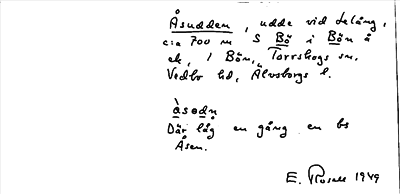 Åsudden, udde vid Lelång,
c:a 700 m S Bö i Bön å
ek, 1 Bön, Torrskogs sn,
Vedbo hd, Älvsborgs l.
àsɵdn̥
Där låg en gång en bs
Åsen.
E. Rosell 1949